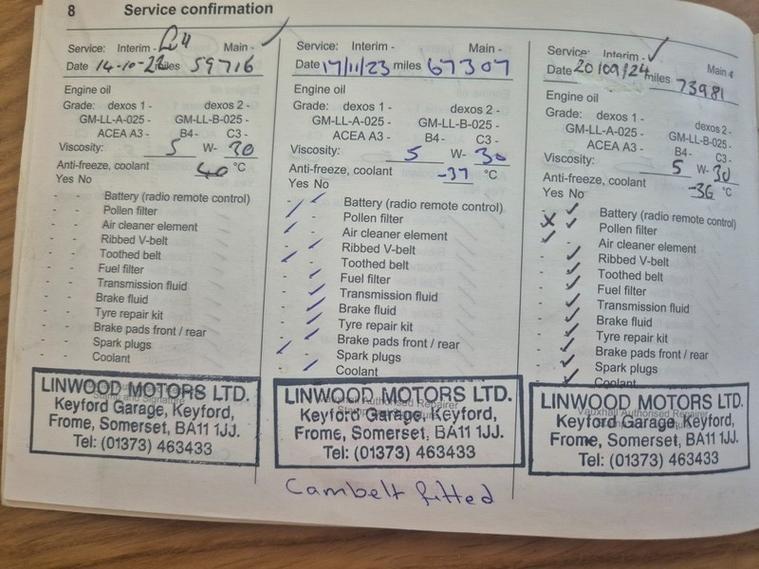 8 Service confirmation
Service: Interim - Main -
Date 14-10-22 miles 59716
Engine oil
Grade: dexos 1 - dexos 2 -
GM-LL-A-025 - GM-LL-B-025 -
ACEA A3 - B4 - C3 -
Viscosity: 5 W- 30
Anti-freeze, coolant 40 °C
Yes No
- - Battery (radio remote control)
- - Pollen filter
- - Air cleaner element
- - Ribbed V-belt
- - Toothed belt
- - Fuel filter
- - Transmission fluid
- - Brake fluid
- - Tyre repair kit
- - Brake pads front / rear
- - Spark plugs
- - Coolant
LINWOOD MOTORS LTD.
Keyford Garage, Keyford,
Frome, Somerset, BA11 1JJ.
Tel: (01373) 463433
Service: Interim - Main -
Date 17/11/23 miles 67307
Engine oil
Grade: dexos 1 - dexos 2 -
GM-LL-A-025 - GM-LL-B-025 -
ACEA A3 - B4 - C3 -
Viscosity: 5 W- 30
Anti-freeze, coolant -37 °C
Yes No
Battery (radio remote control)
Pollen filter
Air cleaner element
Ribbed V-belt
Toothed belt
Fuel filter
Transmission fluid
Brake fluid
Tyre repair kit
Brake pads front / rear
Spark plugs
Coolant
LINWOOD MOTORS LTD.
Keyford Garage, Keyford,
Frome, Somerset, BA11 1JJ.
Tel: (01373) 463433
Cambelt fitted
Service: Interim - Main -
Date 20/09/24 miles 73981
Engine oil
Grade: dexos 1 - dexos 2 -
GM-LL-A-025 - GM-LL-B-025 -
ACEA A3 - B4 - C3 -
Viscosity: 5 W- 30
Anti-freeze, coolant -36 °C
Yes No
Battery (radio remote control)
Pollen filter
Air cleaner element
Ribbed V-belt
Toothed belt
Fuel filter
Transmission fluid
Brake fluid
Tyre repair kit
Brake pads front / rear
Spark plugs
Coolant
Vauxhall Authorised Repairer
LINWOOD MOTORS LTD.
Keyford Garage, Keyford,
Frome, Somerset, BA11 1JJ.
Tel: (01373) 463433